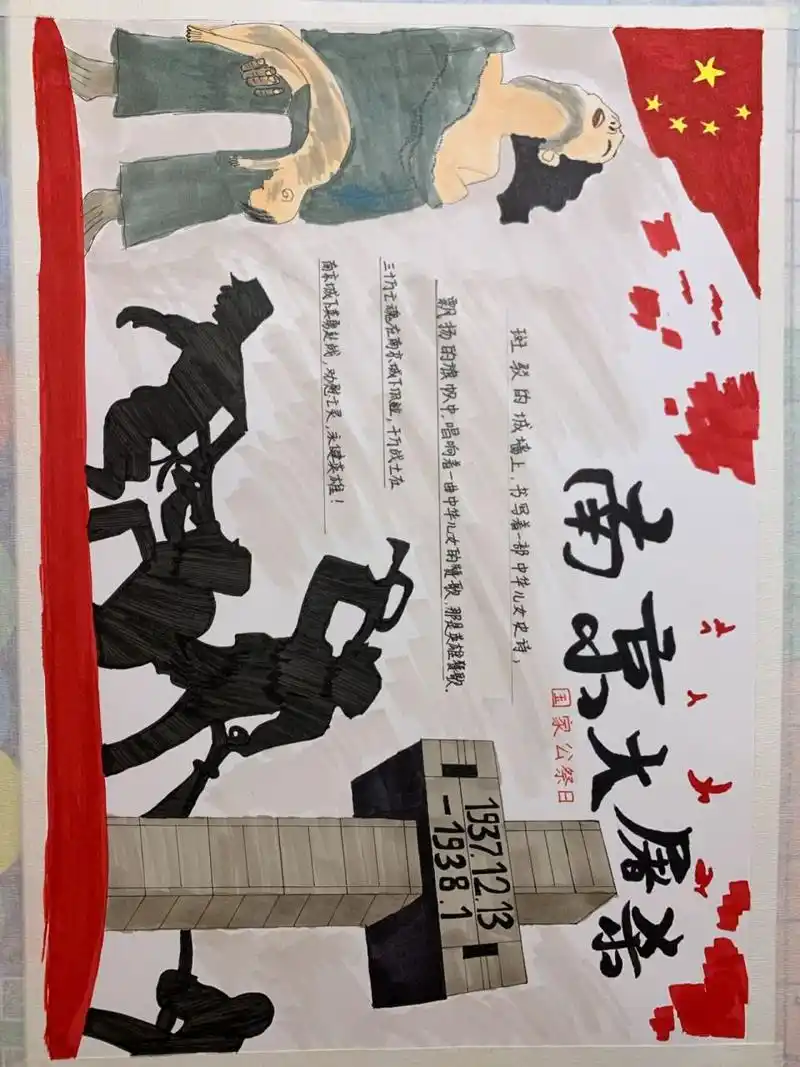 南京大屠杀
国家公祭日
斑驳的城墙上,书写着一部中华儿女史诗;
飘扬的旗帜中,唱响着一曲中华儿女的赞歌,那是英雄赞歌、
三十万亡魂在南京城下,千万战士在
南京城下英勇赴战,功慰亡灵,永健英雄!
1937.12.13
-1938.1